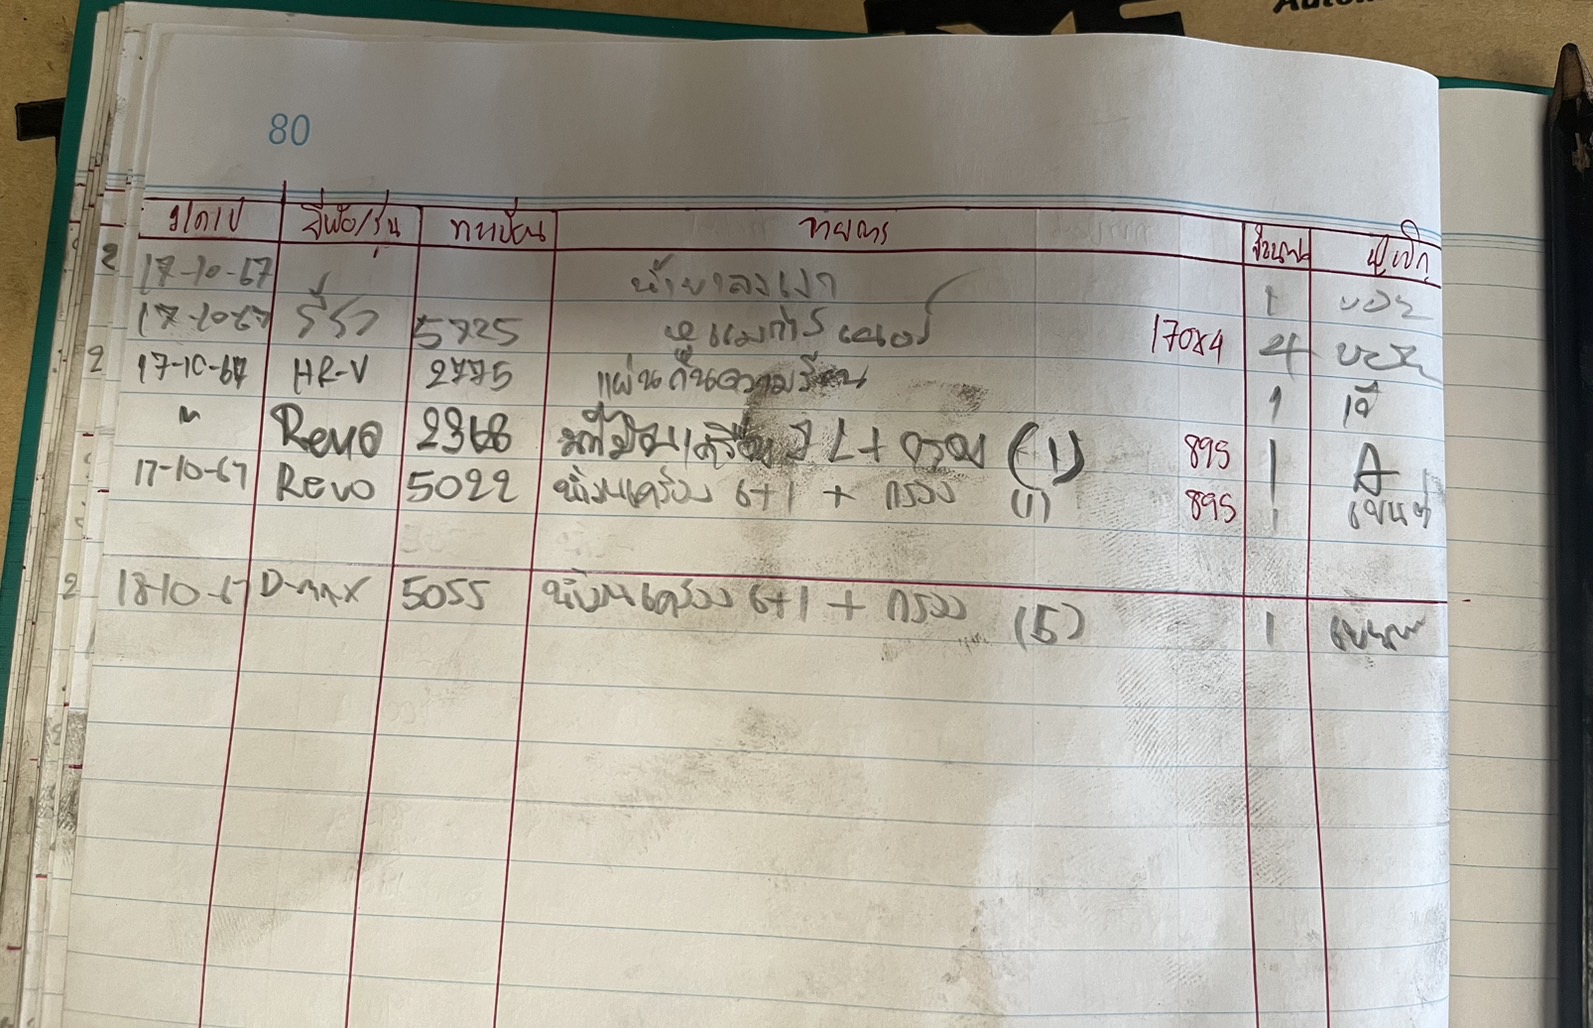 80
ว/ด/ป ยี่ห้อ/รุ่น ทะเบียน รายการ จำนวน ผู้เบิก
2 17-10-67 น้ำยาลงเงา 1
17-10-67 5725 170x4 4
2 17-10-67 HR-V 2775 แผ่นกันความร้อน 1 เจ๊
" Revo 2368 7 L + กรอง (1) 895 1 A
17-10-67 Revo 5022 น้ำมันเครื่อง 6+1 + กรอง (1) 895 1
2 18-10-67 D-max 5055 น้ำมันเครื่อง 6+1 + กรอง (5) 1